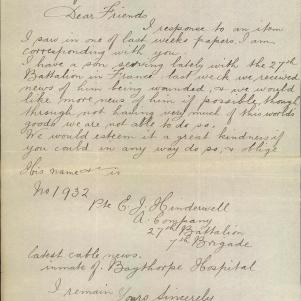 Dear Friends
I response to an item
I saw in one of last weeks papers, I am
corresponding with you.
I have a son serving lately with the 27th
Battalion in France, last week we received
news of him being wounded, & we would
like more news of him if possible, though
through not having very much of this worlds
goods we are not able to do so.
We would esteem it a great kindness if
you could in any way do so, & oblige
His name & is
No 1932
Pte E. J. Hinderwell
A. Company
27th Battalion
7th Brigade
latest cable news.
inmate of. Bagthorpe Hospital
I remain Yours Sincerely